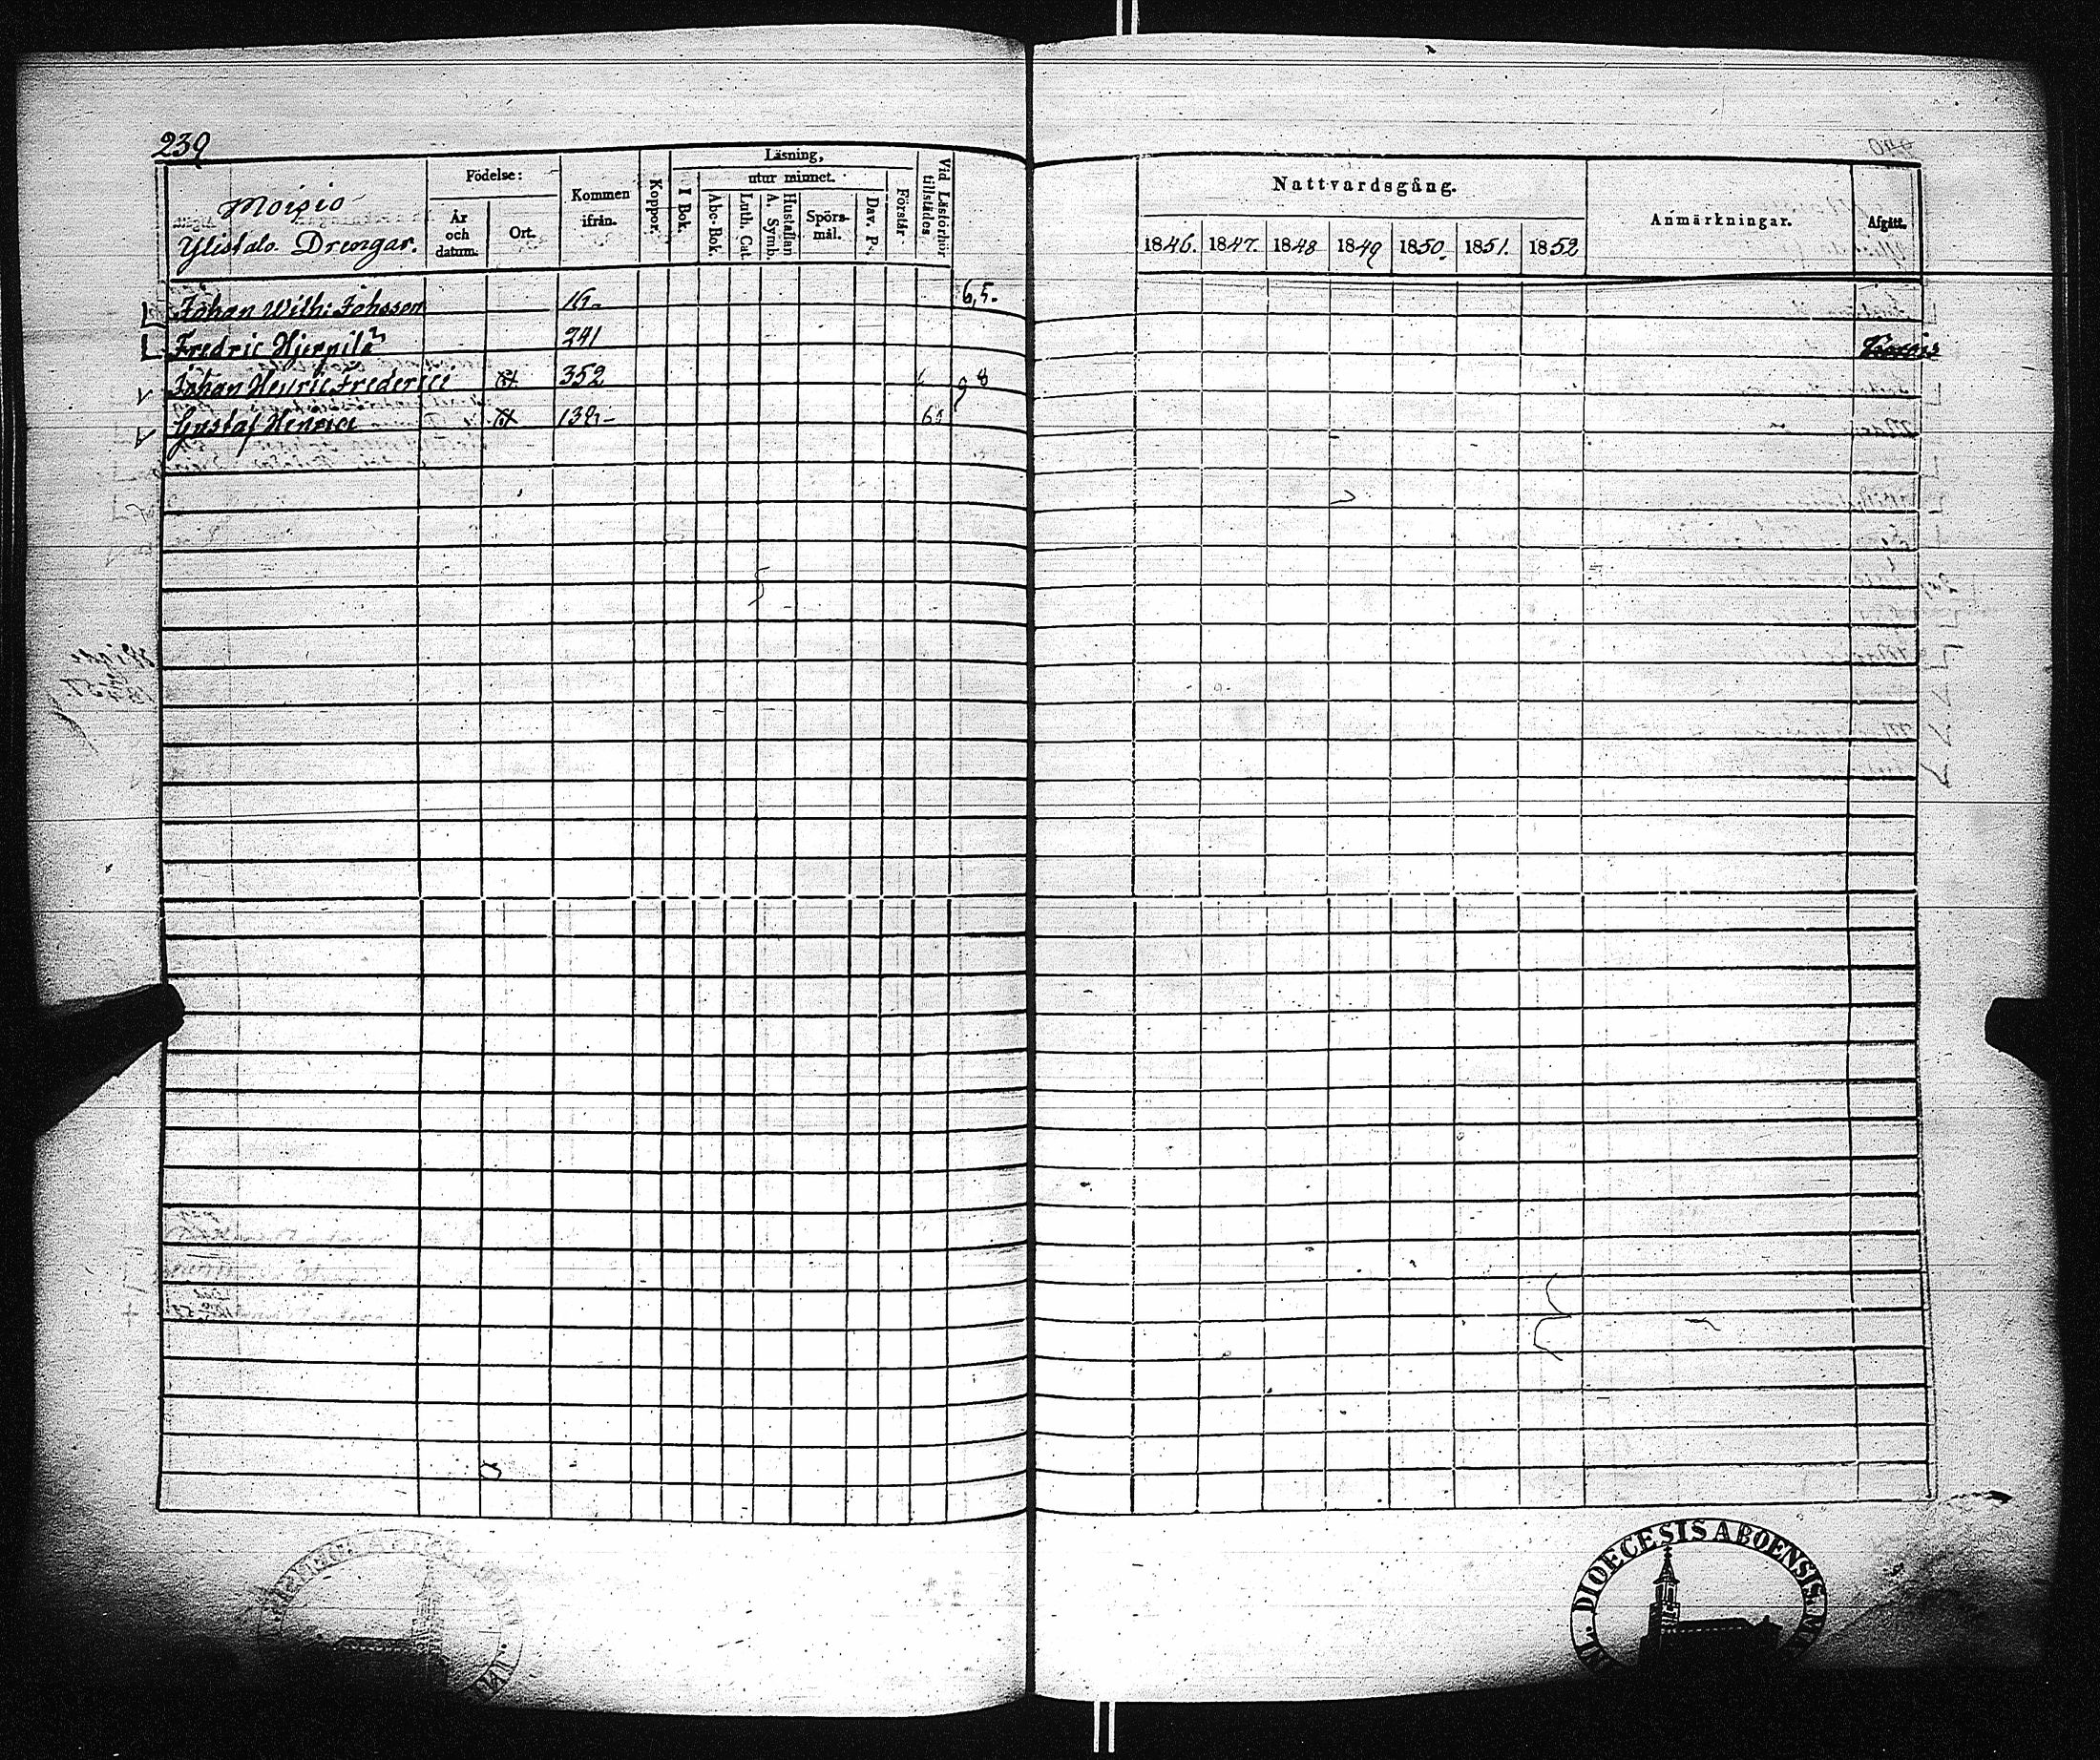 239
Moisio
Ylistalo. Drengar.
Födelse:
År och datum.
Ort.
Kommen ifrån.
Koppor.
Läsning,
I Bok.
utur minnet.
Abc-Bok.
Luth. Cat.
A. Symb.
Hustaflan
Spörs-
mål.
Dav. P.
Förstår
Vid Läsförhör
tillstädes
Nattvardsgång.
1846. 1847. 1848 1849 1850. 1851. 1852
Anmärkningar.
Afgått.
Johan Wilh: Johsson 6,5.
Fredric Hjerpilä 241
Johan Henric Frederici 352 8
Gustaf Henrici
DIOECESIS ABOENSIS